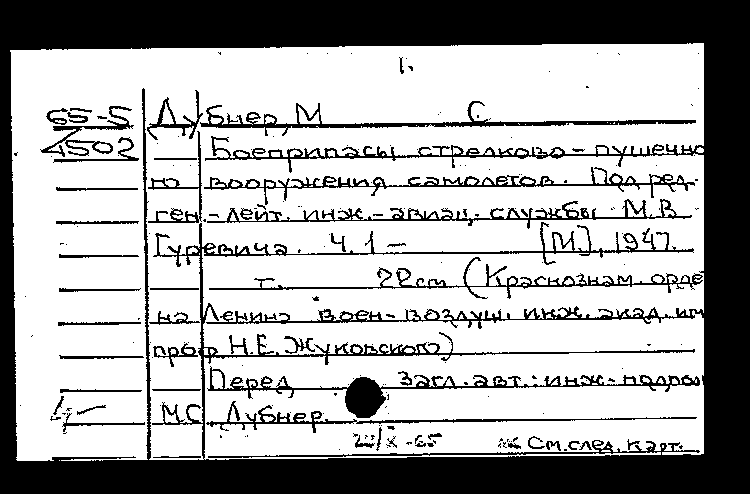 1.
65-5 Дубнер, М С
4502 Боеприпасы стрелково-пушечно
го вооружения самолетов. Под ред.
ген.-лейт. инж.-авиац. службы М.В
Гуревича. Ч.1- [М.], 1947.
т. 22cm (Краснознам. орде
на Ленина воен-воздуш. инж. акад. им
проф Н.Е. Жуковского)
Перед загл. авт.: инж-подпол
4- М.С. Дубнер.
22/X-65 См. след. карт.